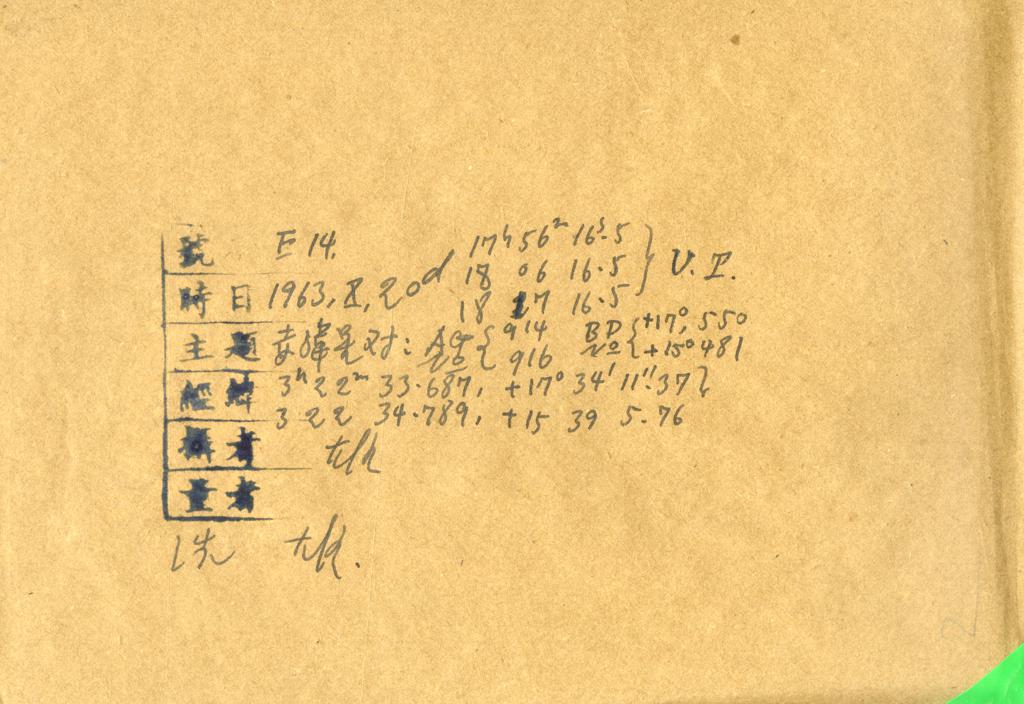 號 E 14. 17ʰ 56ᵐ 16ˢ.5
18 06 16.5 } U.T.
時日 1963, X, 20d 18 17 16.5
主題 赤緯星对: AG { 914 BD { +17°, 550
No { 916 No { +15° 481
經緯 3ʰ 22ᵐ 33.687, +17° 34' 11".37 }
3 22 34.789, +15 39 5.76
攝者
量者
洗